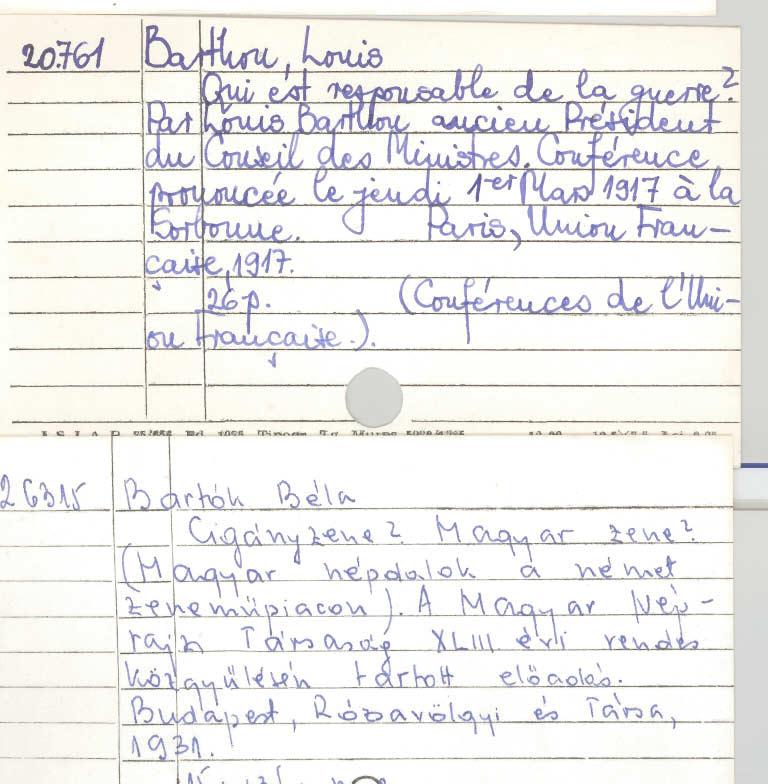 20.761 Barthou, Louis
Qui est responsable de la guerre?
Par Louis Barthou ancien Président
du Conseil des Ministres. Conférence
prononcée le jeudi 1er Mars 1917 à la
Sorbonne. Paris, Union Fran-
çaise, 1917.
26 p. (Conférences de l'Uni-
on Française.).
26315 Bartók Béla
Cigányzene? Magyar zene?
(Magyar népdalok a német
zeneműpiacon). A Magyar Nép-
rajzi Társaság XLIII évi rendes
közgyűlésén tartott előadás.
Budapest, Rózsavölgyi és Társa,
1931.